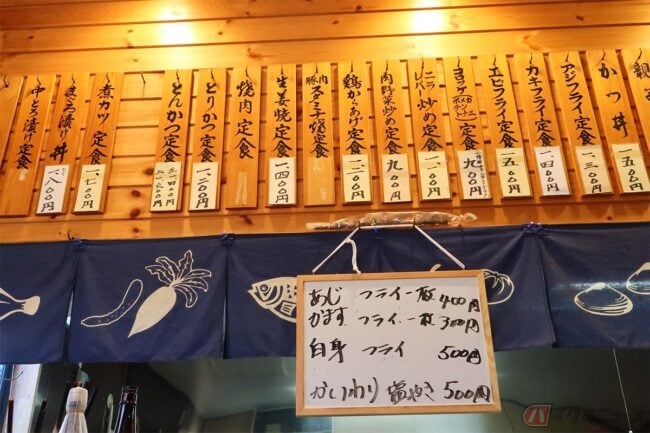 かつ丼
一五〇〇円
アジフライ定食
一三〇〇円
カキフライ定食
一四〇〇円
エビフライ定食
一五〇〇円
コロッケ定食
ニラレバー炒め定食
肉野菜炒め定食
九〇〇円
鶏からあげ定食
一二〇〇円
豚肉スタミナ焼定食
生姜焼定食
一四〇〇円
焼肉定食
とりかつ定食
一二〇〇円
とんかつ定食
煮カツ定食
一七〇〇円
まぐろ漬け丼
一八〇〇円
中とろ漬け定食
あじ フライ一枚 400円
かます フライ一枚 300円
自身 フライ 500円
かいわり 塩やき 500円